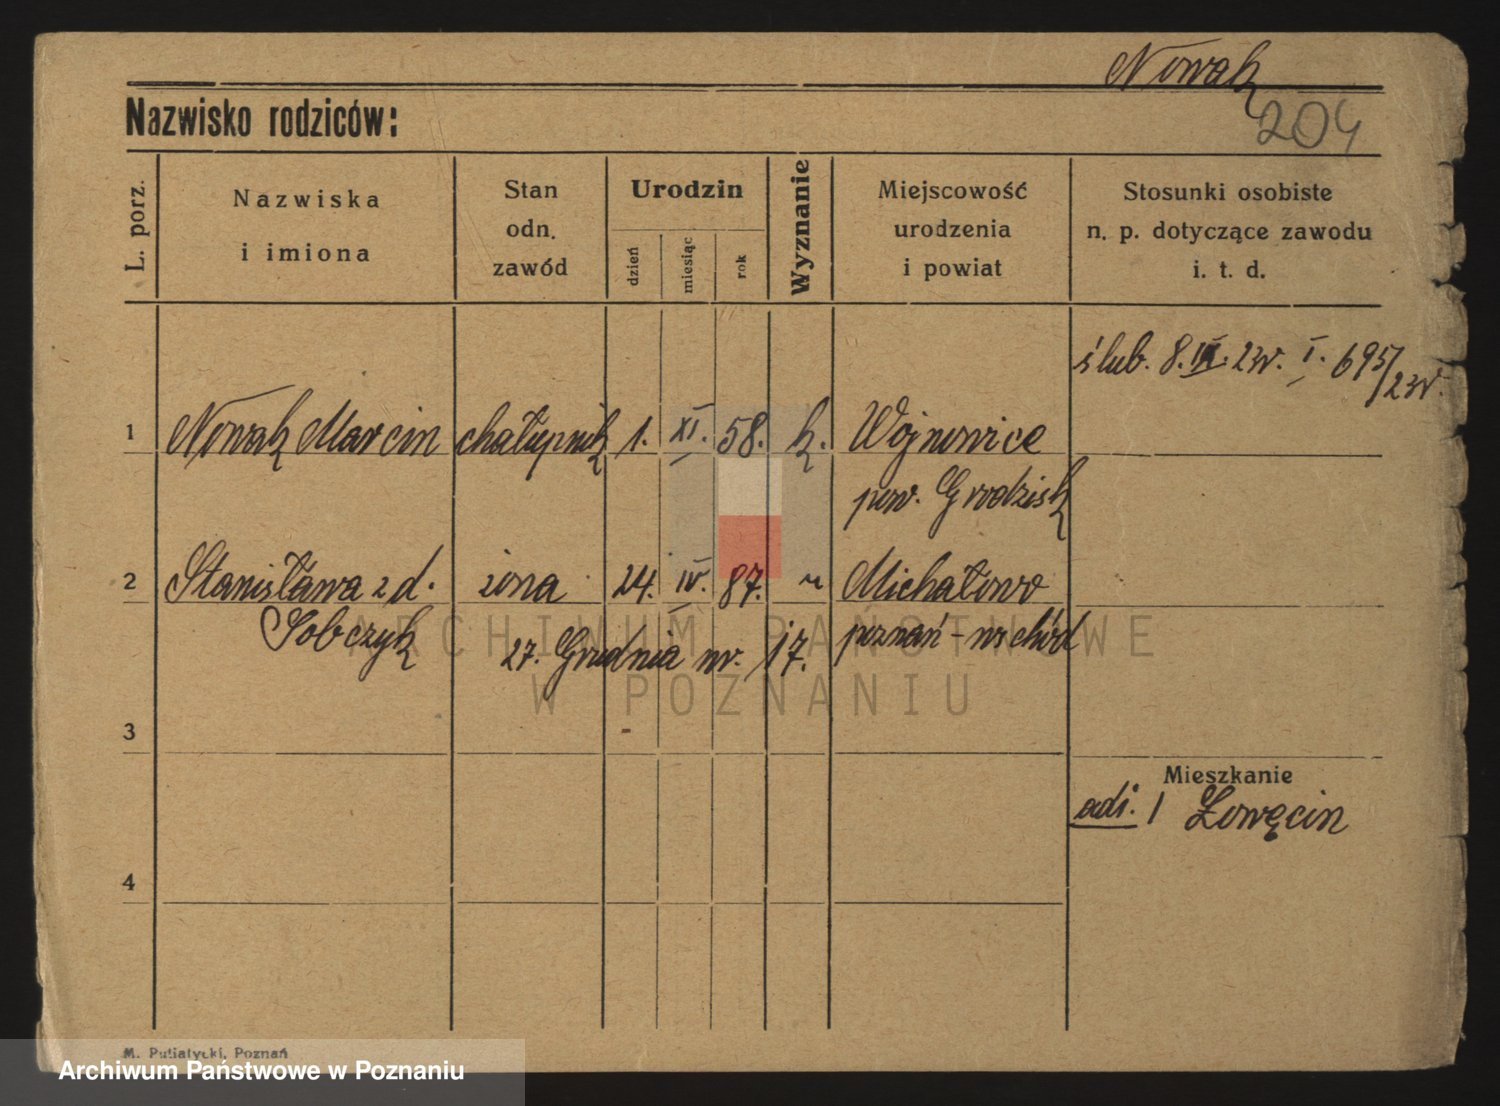 Nowak
Nazwisko rodziców:
204
L. porz.
Nazwiska
i imiona
Stan
odn.
zawód
Urodzin
dzień
miesiąc
rok
Wyznanie
Miejscowość
urodzenia
i powiat
Stosunki osobiste
n. p. dotyczące zawodu
i. t. d.
ślub. 8. 23r. I. 695/23r.
1 Nowak Marcin chałupnik 1. XI. 58. k. Wojnowice
pow. Grodzisk
2 Stanisława z d. żona 24. IV. 87. " Michałowo
Sobczyk poznań-wschód
27. Grudnia nr. 17.
ARCHIWUM PAŃSTWOWE
W POZNANIU
3
Mieszkanie
adi. 1 Żowęcin
4
M. Putiatycki, Poznań
Archiwum Państwowe w Poznaniu